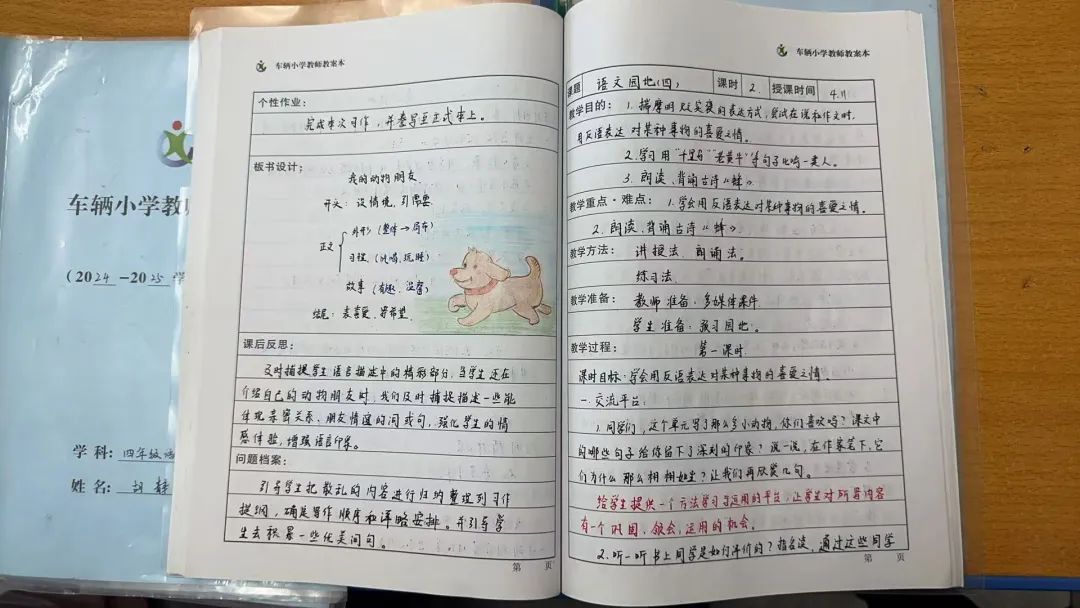 车辆小学教师
(2024-2025学
学科:四年级
姓名:胡静
车辆小学教师教案本
个性作业:
完成本次习作,并誊写至正式本上。
板书设计:
我的动物朋友
开头:设情境,引需要
正文
外形(整体→局部)
习性(吃喝、玩睡)
故事(有趣、没有)
结尾:表喜爱、寄希望。
课后反思:
及时捕捉学生语言描述中的精彩部分,当学生还在
介绍自己的动物朋友时,我们及时捕捉描述一些能
体现亲密关系、朋友情谊的词或句,强化学生的情
感体验,增强语言印象。
问题档案:
引导学生把散乱的内容进行归纳整理列习作
提纲,确定写作顺序和详略安排。并引导学
生去积累一些优美词句。
第 页
车辆小学教师教案本
课题 语文园地(四) 课时 2. 授课时间 4.11
教学目的:1.揣摩明贬实褒的表达方式,尝试在说和作文时,
用反语表达对某种事物的喜爱之情。
2.学习用"千里马""老黄牛"等句子比喻一类人。
3.朗读、背诵古诗《蜂》
教学重点·难点:1.学会用反语表达对某种事物的喜爱之情。
2.朗读、背诵古诗《蜂》
教学方法:讲授法、朗诵法。
练习法
教学准备:教师准备:多媒体课件
学生准备:预习园地。
教学过程:第一课时
课时目标:学会用反语表达对某种事物的喜爱之情。
一.交流平台:
1.同学们,这个单元写了那么多小动物,你们喜欢吗?课文中
的哪些句子给你留下了深刻的印象?说一说,在作家笔下,它
们为什么那么栩栩如生?让我们再欣赏几句。
给学生提供一个方法学习与运用的平台,让学生对所学内容
有一个巩固、领会、运用的机会。
2.听一听书上同学是如何评价的?指名读,通过这些同学
第 页